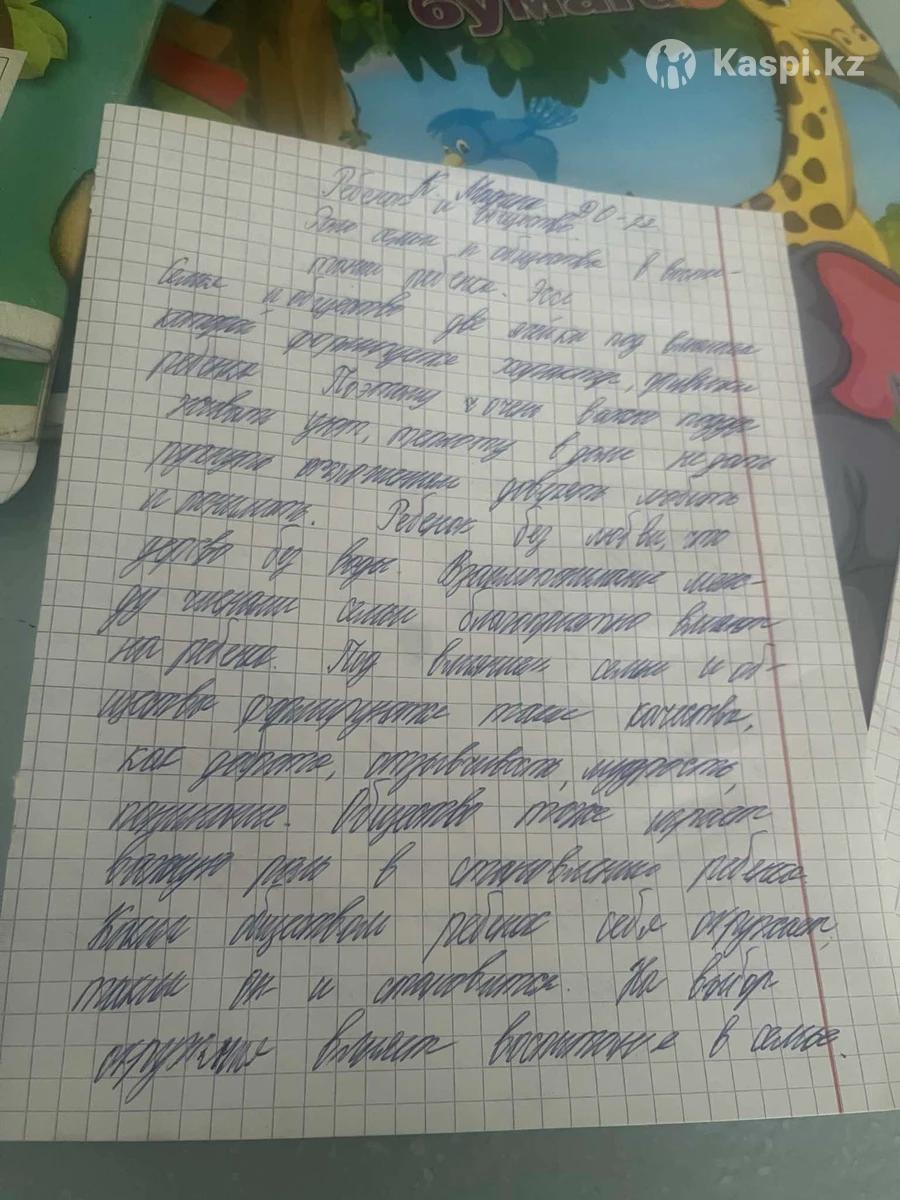 бумага
Kaspi.kz
К. Мадина ДО-22
Ребенок и общество
Роль семьи и общества в воспи-
тании ребенка. Эссе
Семья и общество две ячейки под влиянием
которой формируется характер, привычки
ребенка Поэтому очень важно подде
живать уют, теплоту в доме не дать
рухнуть отношениям доверять любить
и понимать. Ребенок без любви, что
дерево без воды. Взаимопонимание меж-
ду членами семьи благоприятно влияют
на ребенка. Под влиянием семьи и об-
щества формируются такие качества,
как доброта, отзывчивость, мудрость,
понимание. Общество тоже играет
важную роль в становлении ребенка.
Каким обществом ребенок себя окружает,
таким он и становится. На выбор
окружения влияет воспитание в семье.